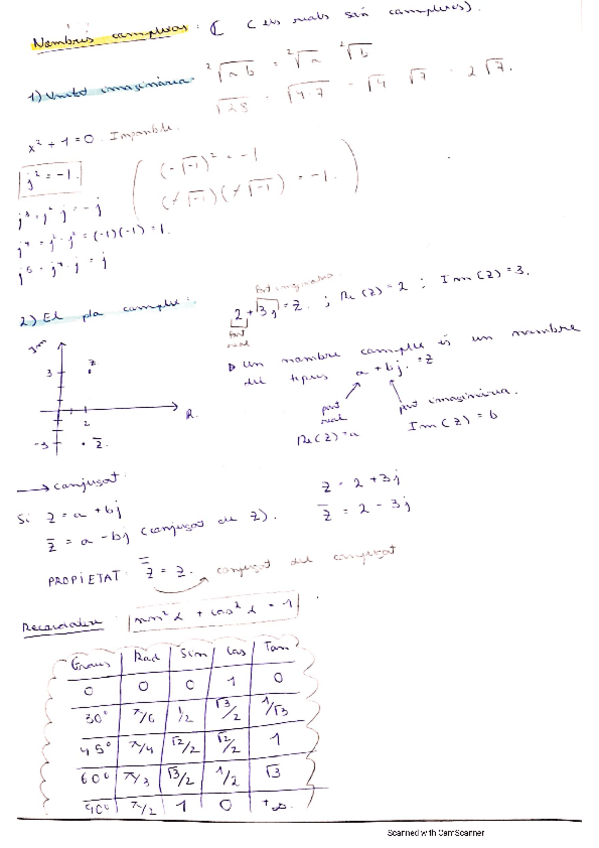 Nombres complexos: ℂ (els reals són complexos).
1) Unitat imaginària. ²√ab = ²√a ²√b
√28 = √4·7 = √4 √7 = 2√7.
x² + 1 = 0. Impossible.
j² = -1.
(-√-1)² = -1
(√-1)(√-1) = -1.
j³ = j² · j = -j
j⁴ = j² · j² = (-1)(-1) = 1.
j⁵ = j⁴ · j = j
2) El pla complex:
part imaginària.
2 + 3j = z. ; Re(z) = 2 ; Im(z) = 3.
part real
Un nombre complex és un nombre
del tipus a + bj = z
part real
Re(z) = a
part imaginària.
Im(z) = b
Im
3
z
2
R.
-3
z̄.
→ conjugat:
Si z = a + bj
z̄ = a - bj (conjugat de z).
z = 2 + 3j
z̄ = 2 - 3j
PROPIETAT: z̿ = z. conjugat del conjugat
sin² α + cos² α = 1
Graus Rad Sin Cos Tan
0 0 0 1 0
30° π/6 1/2 √3/2 1/√3
45° π/4 √2/2 √2/2 1
60° π/3 √3/2 1/2 √3
90° π/2 1 0 +∞
Scanned with CamScanner